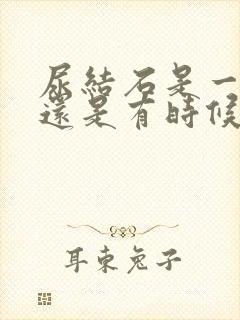 尿結石是一
還是有時候
耳東兔子